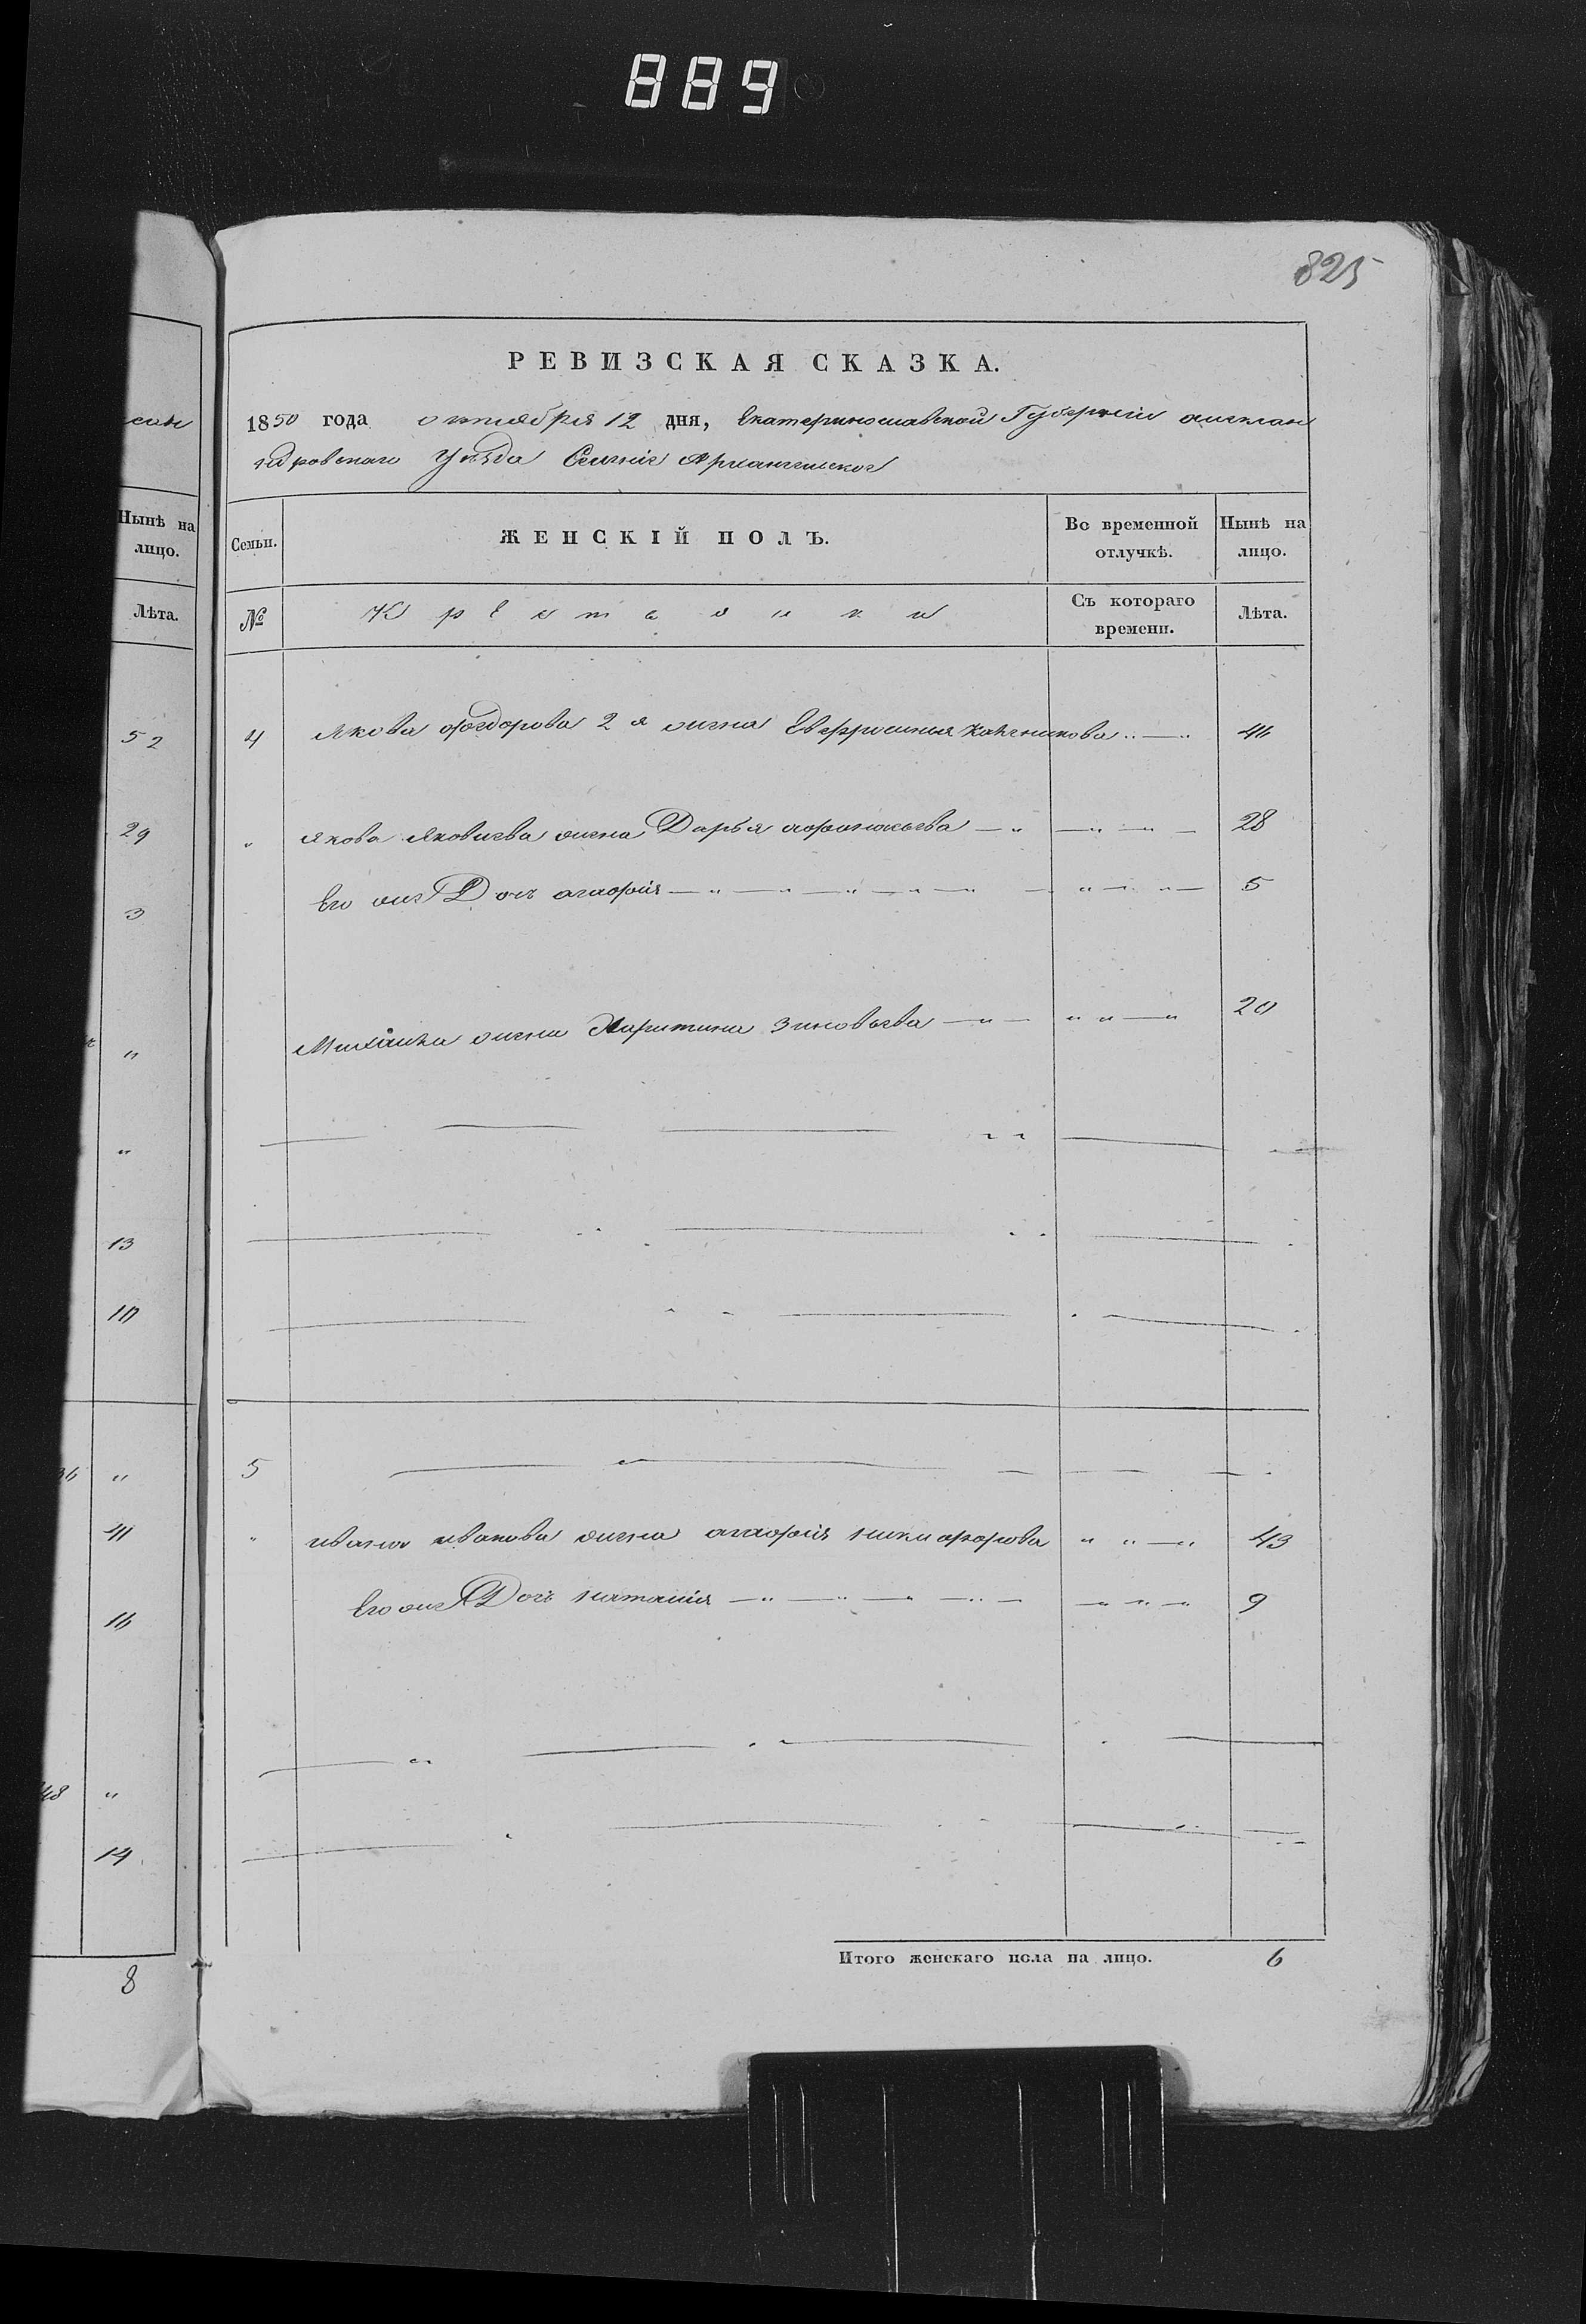 889
825
РЕВИЗСКАЯ СКАЗКА.
1850 года октября 12 дня, Екатеринославской Губернии алексан
ндровскаго Уезда Селение Архангельское
Нынѣ на лицо.
Семьи.
ЖЕНСКІЙ ПОЛЪ.
Во временной отлучкѣ.
Нынѣ на лицо.
Лѣта.
№
Съ котораго времени.
Лѣта.
52
4 Якова Фоедорова 2 я жена Евфросинья 46
29
" Якова Яковлева жена Дарья 28
3
Его Дочь агафия 5
"
Михайлы жена Харитина Зиновьева 20
"
13
10
36 "
5
41
" ивана иванова жена агафия никифорова 43
16
Его Дочь наталия 9
48 "
14
Итого женскаго пола на лицо. 6
8